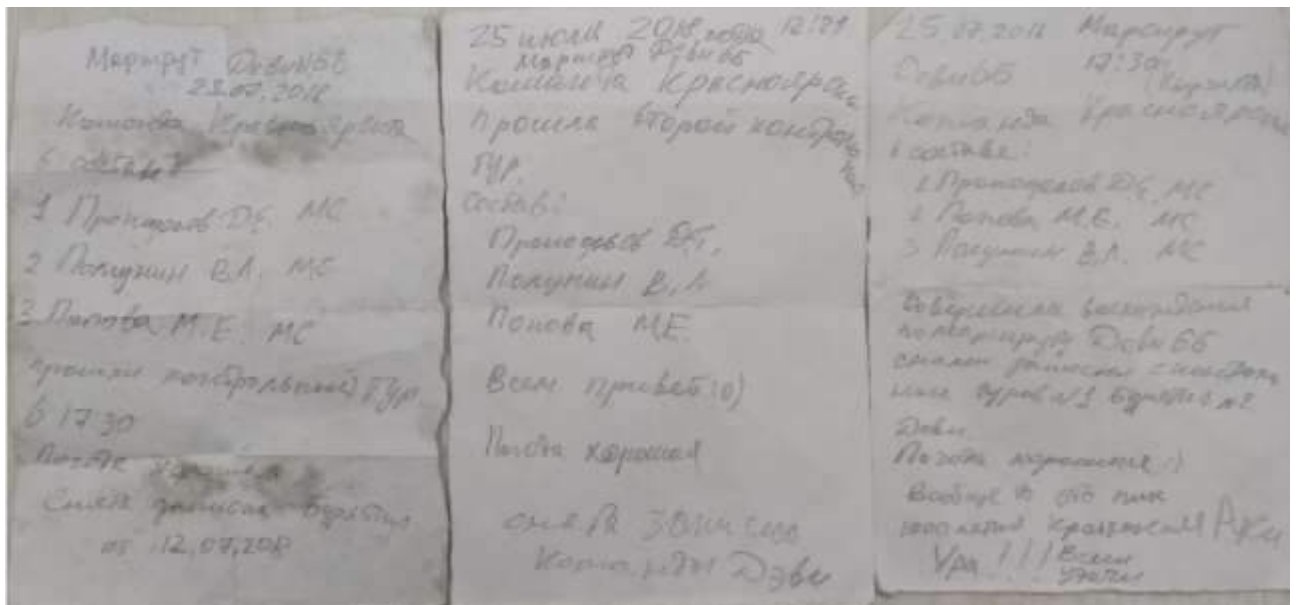 Маршрут Дэви 6Б
23.07.2018
Команда Красноярска
в составе
1 Прокофьев Д.Е. МС
2 Полунин В.Л. МС
3 Попова М.Е. МС
прошли контрольный тур
в 17:30
Погода хорошая
Снята записка Бурятия
от 12.07.2018
25 июля 2018 года
Маршрут Дэви 6Б
Команда Красноярска
прошла второй контрольный
тур.
состав:
Прокофьев Д.Е.
Полунин В.Л.
Попова М.Е.
Всем привет :о)
Погода хорошая
снята записка
команды Дэви
25.07.2018 Маршрут
Дэви 6Б 17:30
Команда Красноярска
в составе:
1 Прокофьев Д.Е. МС
2 Попова М.Е. МС
3 Полунин В.Л. МС
Совершила восхождение
по маршруту Дэви 6Б
сняли записки с контроль
ных туров №1 Бурятия №2
Дэви
Погода хорошая :)
Вообще то это пик
Ура!!! Всем
удачи